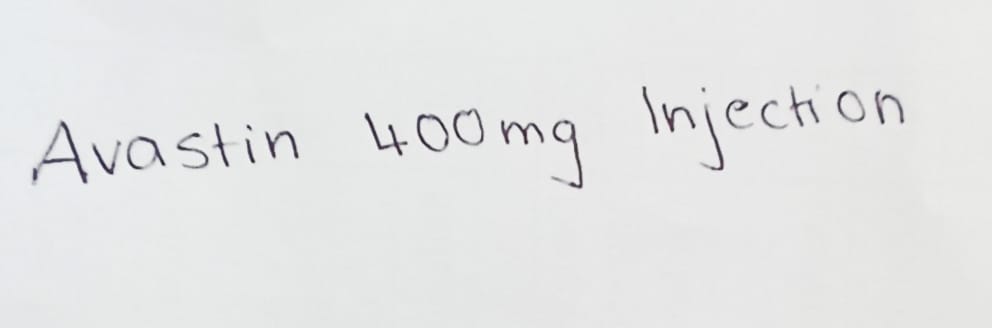 Avastin 400mg Injection